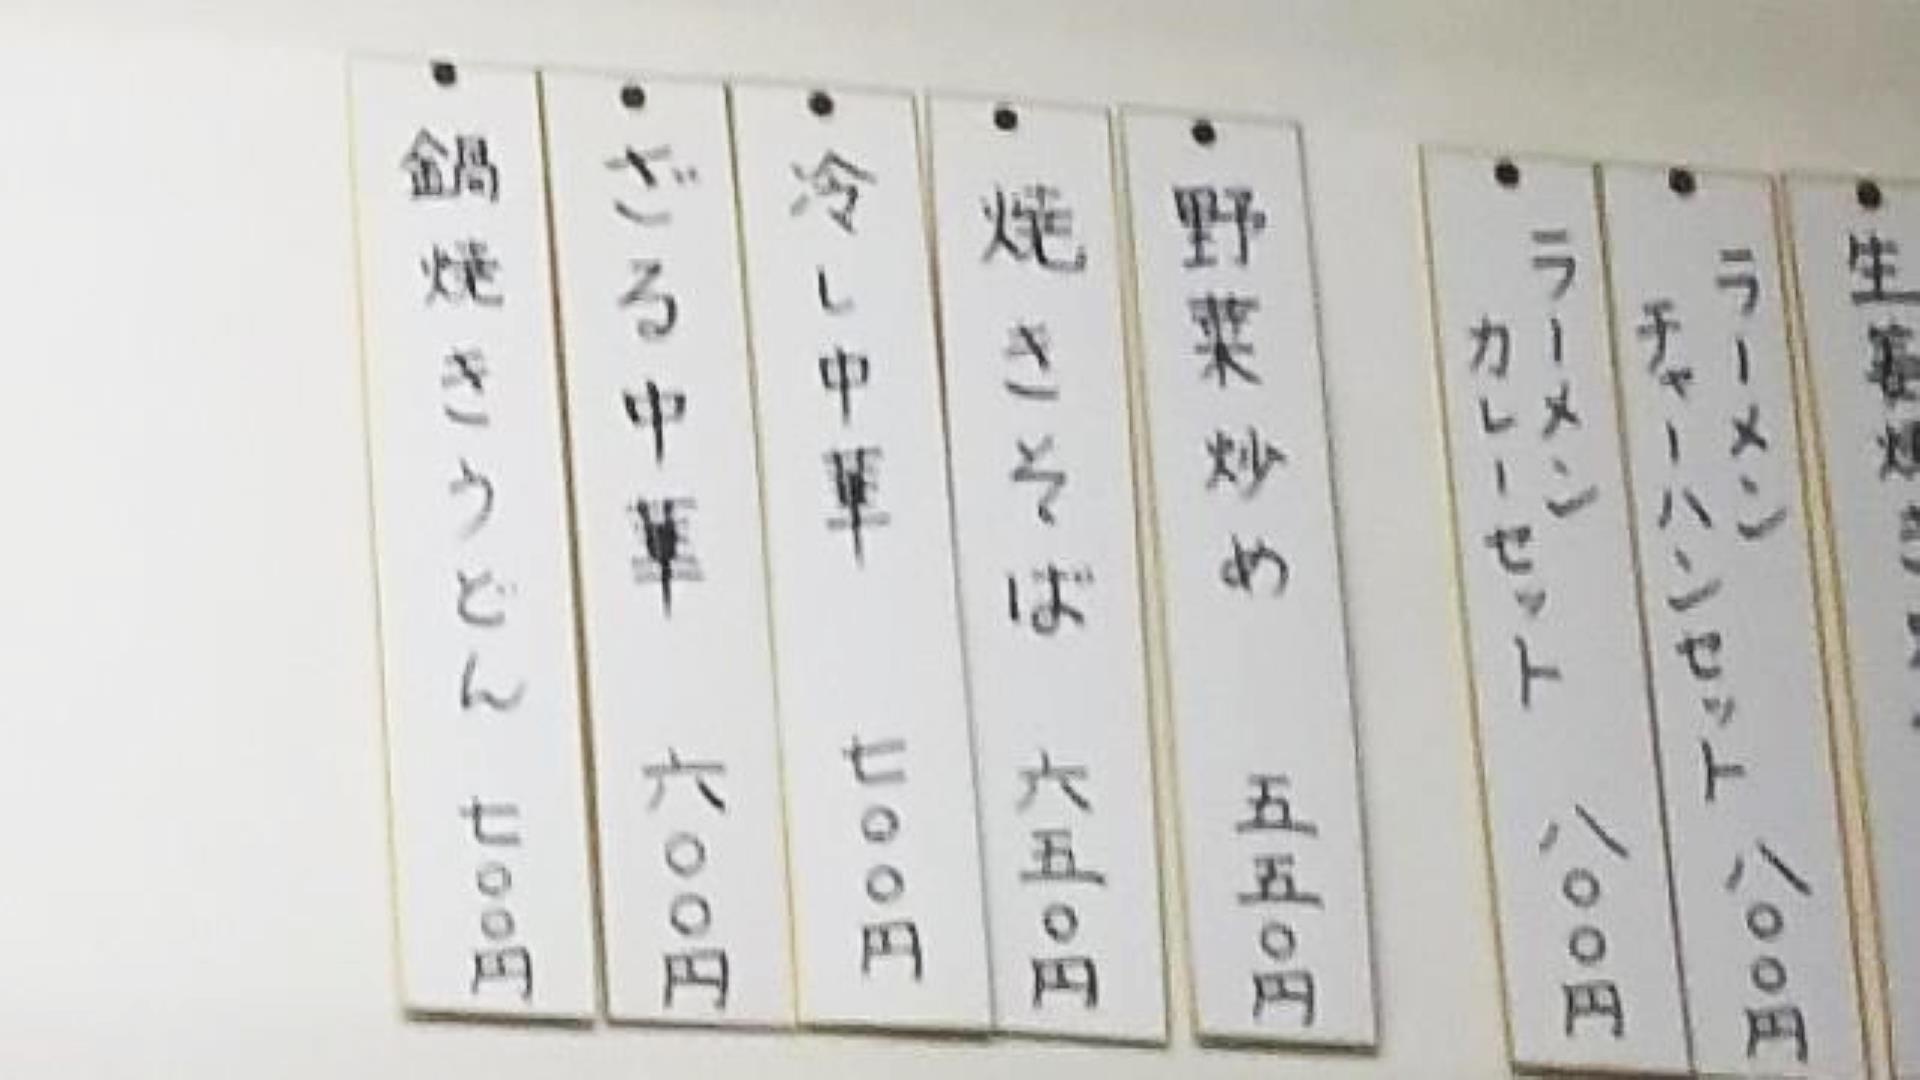 生姜焼き
ラーメン
チャーハンセット 八〇〇円
ラーメン
カレーセット 八〇〇円
野菜炒め 五五〇円
焼きそば 六五〇円
冷し中華 七〇〇円
ざる中華 六〇〇円
鍋焼きうどん 七〇〇円